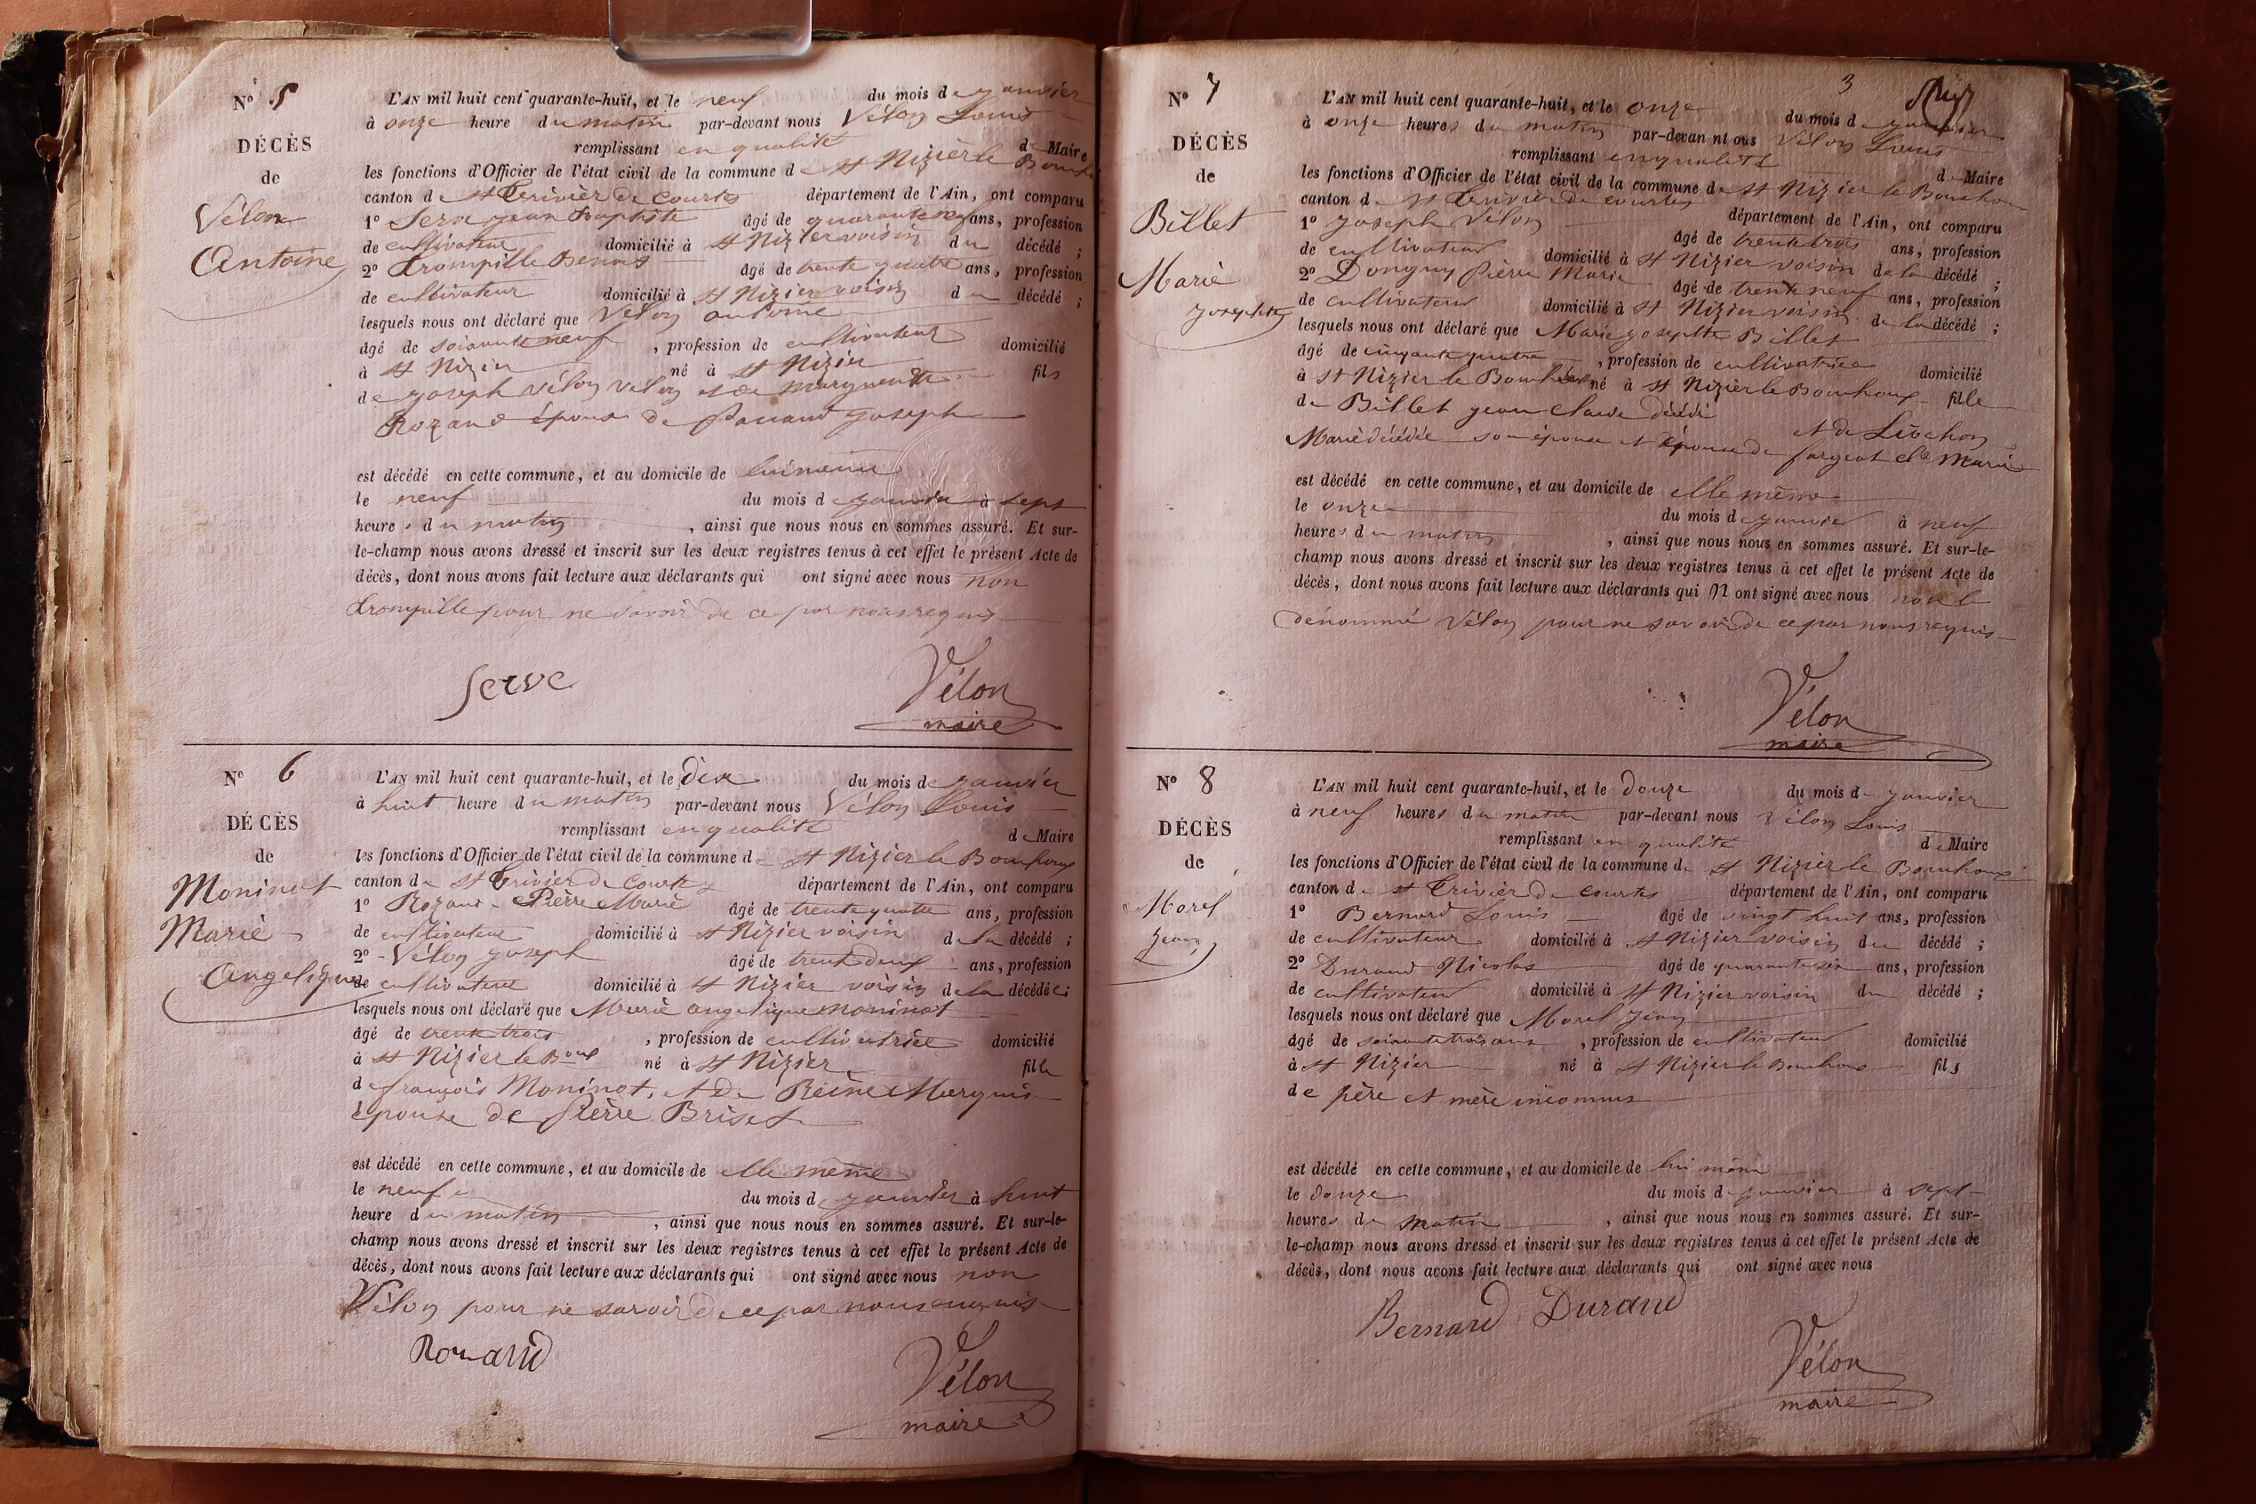 N° 5
DÉCÈS
de
Vélon
Antoine
L'AN mil huit cent quarante-huit, et le neuf du mois de janvier
à onze heure du matin par-devant nous Vélon Louis
remplissant en qualité de Maire
les fonctions d'Officier de l'état civil de la commune de St Nizier le Bouchoux
canton de St Trivier de Courtes département de l'Ain, ont comparu
1° Serve jean Baptiste âgé de quarante ans, profession
de cultivateur domicilié à St Nizier voisin du décédé ;
2° Trompille Benoit âgé de trente quatre ans, profession
de cultivateur domicilié à St Nizier voisin du décédé ;
lesquels nous ont déclaré que Vélon antoine
âgé de soixante neuf , profession de cultivateur domicilié
à St Nizier né à St Nizier fils
de joseph vélon et de marguerite
Rozand époux de joseph
est décédé en cette commune, et au domicile de lui même
le neuf du mois de janvier à sept
heures du matin , ainsi que nous nous en sommes assuré. Et sur-
le-champ nous avons dressé et inscrit sur les deux registres tenus à cet effet le présent Acte de
décès, dont nous avons fait lecture aux déclarants qui ont signé avec nous non
Trompille pour ne savoir de ce par nous requis
Serve
Vélon
maire
N° 6
DÉCÈS
de
Moninot
Marie
Angelique
L'AN mil huit cent quarante-huit, et le dix du mois de janvier
à huit heure du matin par-devant nous Vélon Louis
remplissant en qualité de Maire
les fonctions d'Officier de l'état civil de la commune de St Nizier le Bouchoux
canton de St Trivier de Courtes département de l'Ain, ont comparu
1° Rozand Pierre Marie âgé de trente quatre ans, profession
de cultivateur domicilié à St Nizier voisin de la décédé ;
2° Vélon joseph âgé de trente deux ans, profession
de cultivateur domicilié à St Nizier voisin de la décédée ;
lesquels nous ont déclaré que Marie angelique moninot
âgé de trente trois , profession de cultivatrice domicilié
à St Nizier le Boux né à St Nizier fille
de françois Moninot, et de Reine Marguis
épouse de Pierre Briset
est décédé en cette commune, et au domicile de elle même
le neuf du mois de janvier à huit
heure du matin , ainsi que nous nous en sommes assuré. Et sur-le-
champ nous avons dressé et inscrit sur les deux registres tenus à cet effet le présent Acte de
décès, dont nous avons fait lecture aux déclarants qui ont signé avec nous non
Vélon pour ne savoir de ce par nous requis
Rozand
Vélon
maire
3
N° 7
DÉCÈS
de
Billet
Marie
josephte
L'AN mil huit cent quarante-huit, et le onze du mois de janvier
à onze heures du matin par-devan nt ous Vélon Louis
remplissant en qualité de Maire
les fonctions d'Officier de l'état civil de la commune de St Nizier le Bouchoux
canton de St Trivier de courtes département de l'Ain, ont comparu
1° joseph Vélon âgé de trente trois ans, profession
de cultivateur domicilié à St Nizier voisin de la décédé ;
2° Donguy Pierre Marie âgé de trente neuf ans, profession
de cultivateur domicilié à St Nizier voisin de la décédé ;
lesquels nous ont déclaré que Marie josephte Billet
âgé de cinquante quatre , profession de cultivatrice domicilié
à St Nizier le Bouchoux né à St Nizier le Bouchoux fille
de Billet jean Claude décédé et de Livchon
Marie décédée son épouse et épouse de fargeot Cl. Marie
est décédé en cette commune, et au domicile de elle même
le onze du mois de janvier à neuf
heures du matin , ainsi que nous nous en sommes assuré. Et sur-le-
champ nous avons dressé et inscrit sur les deux registres tenus à cet effet le présent Acte de
décès, dont nous avons fait lecture aux déclarants qui N ont signé avec nous non le
dénommé Vélon pour ne savoir de ce par nous requis
Vélon
maire
N° 8
DÉCÈS
de
Morel
jean
L'AN mil huit cent quarante-huit, et le douze du mois de janvier
à neuf heures du matin par-devant nous Vélon Louis
remplissant en qualité de Maire
les fonctions d'Officier de l'état civil de la commune de St Nizier le Bouchoux
canton de St Trivier de courtes département de l'Ain, ont comparu
1° Bernard Louis âgé de vingt huit ans, profession
de cultivateur domicilié à St Nizier voisin du décédé ;
2° Durand Nicolas âgé de quarante six ans, profession
de cultivateur domicilié à St Nizier voisin du décédé ;
lesquels nous ont déclaré que Morel jean
âgé de soixante trois ans , profession de cultivateur domicilié
à St Nizier né à St Nizier le Bouchoux fils
de père et mère inconnus
est décédé en cette commune, et au domicile de lui même
le douze du mois de janvier à sept
heures du matin , ainsi que nous nous en sommes assuré. Et sur-
le-champ nous avons dressé et inscrit sur les deux registres tenus à cet effet le présent Acte de
décès, dont nous avons fait lecture aux déclarants qui ont signé avec nous
Bernard Durand
Vélon
maire